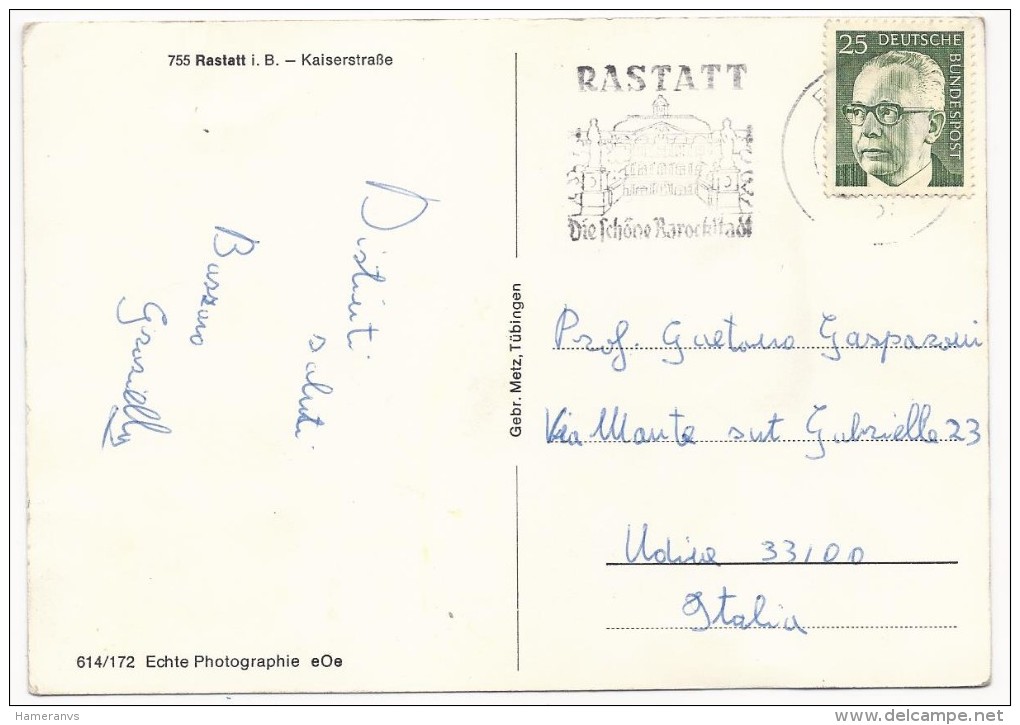 755 Rastatt i. B. – Kaiserstraße
Distinti
saluti
Buzzaro
Graziella
614/172 Echte Photographie eOe
Gebr. Metz, Tübingen
RASTATT
Die schöne Barockstadt
25 DEUTSCHE
BUNDESPOST
Prof. Gaetano Gasparoni
Via Monte sut Gabriella 23
Udine 33100
Italia
Hameranvs
delcampe.net